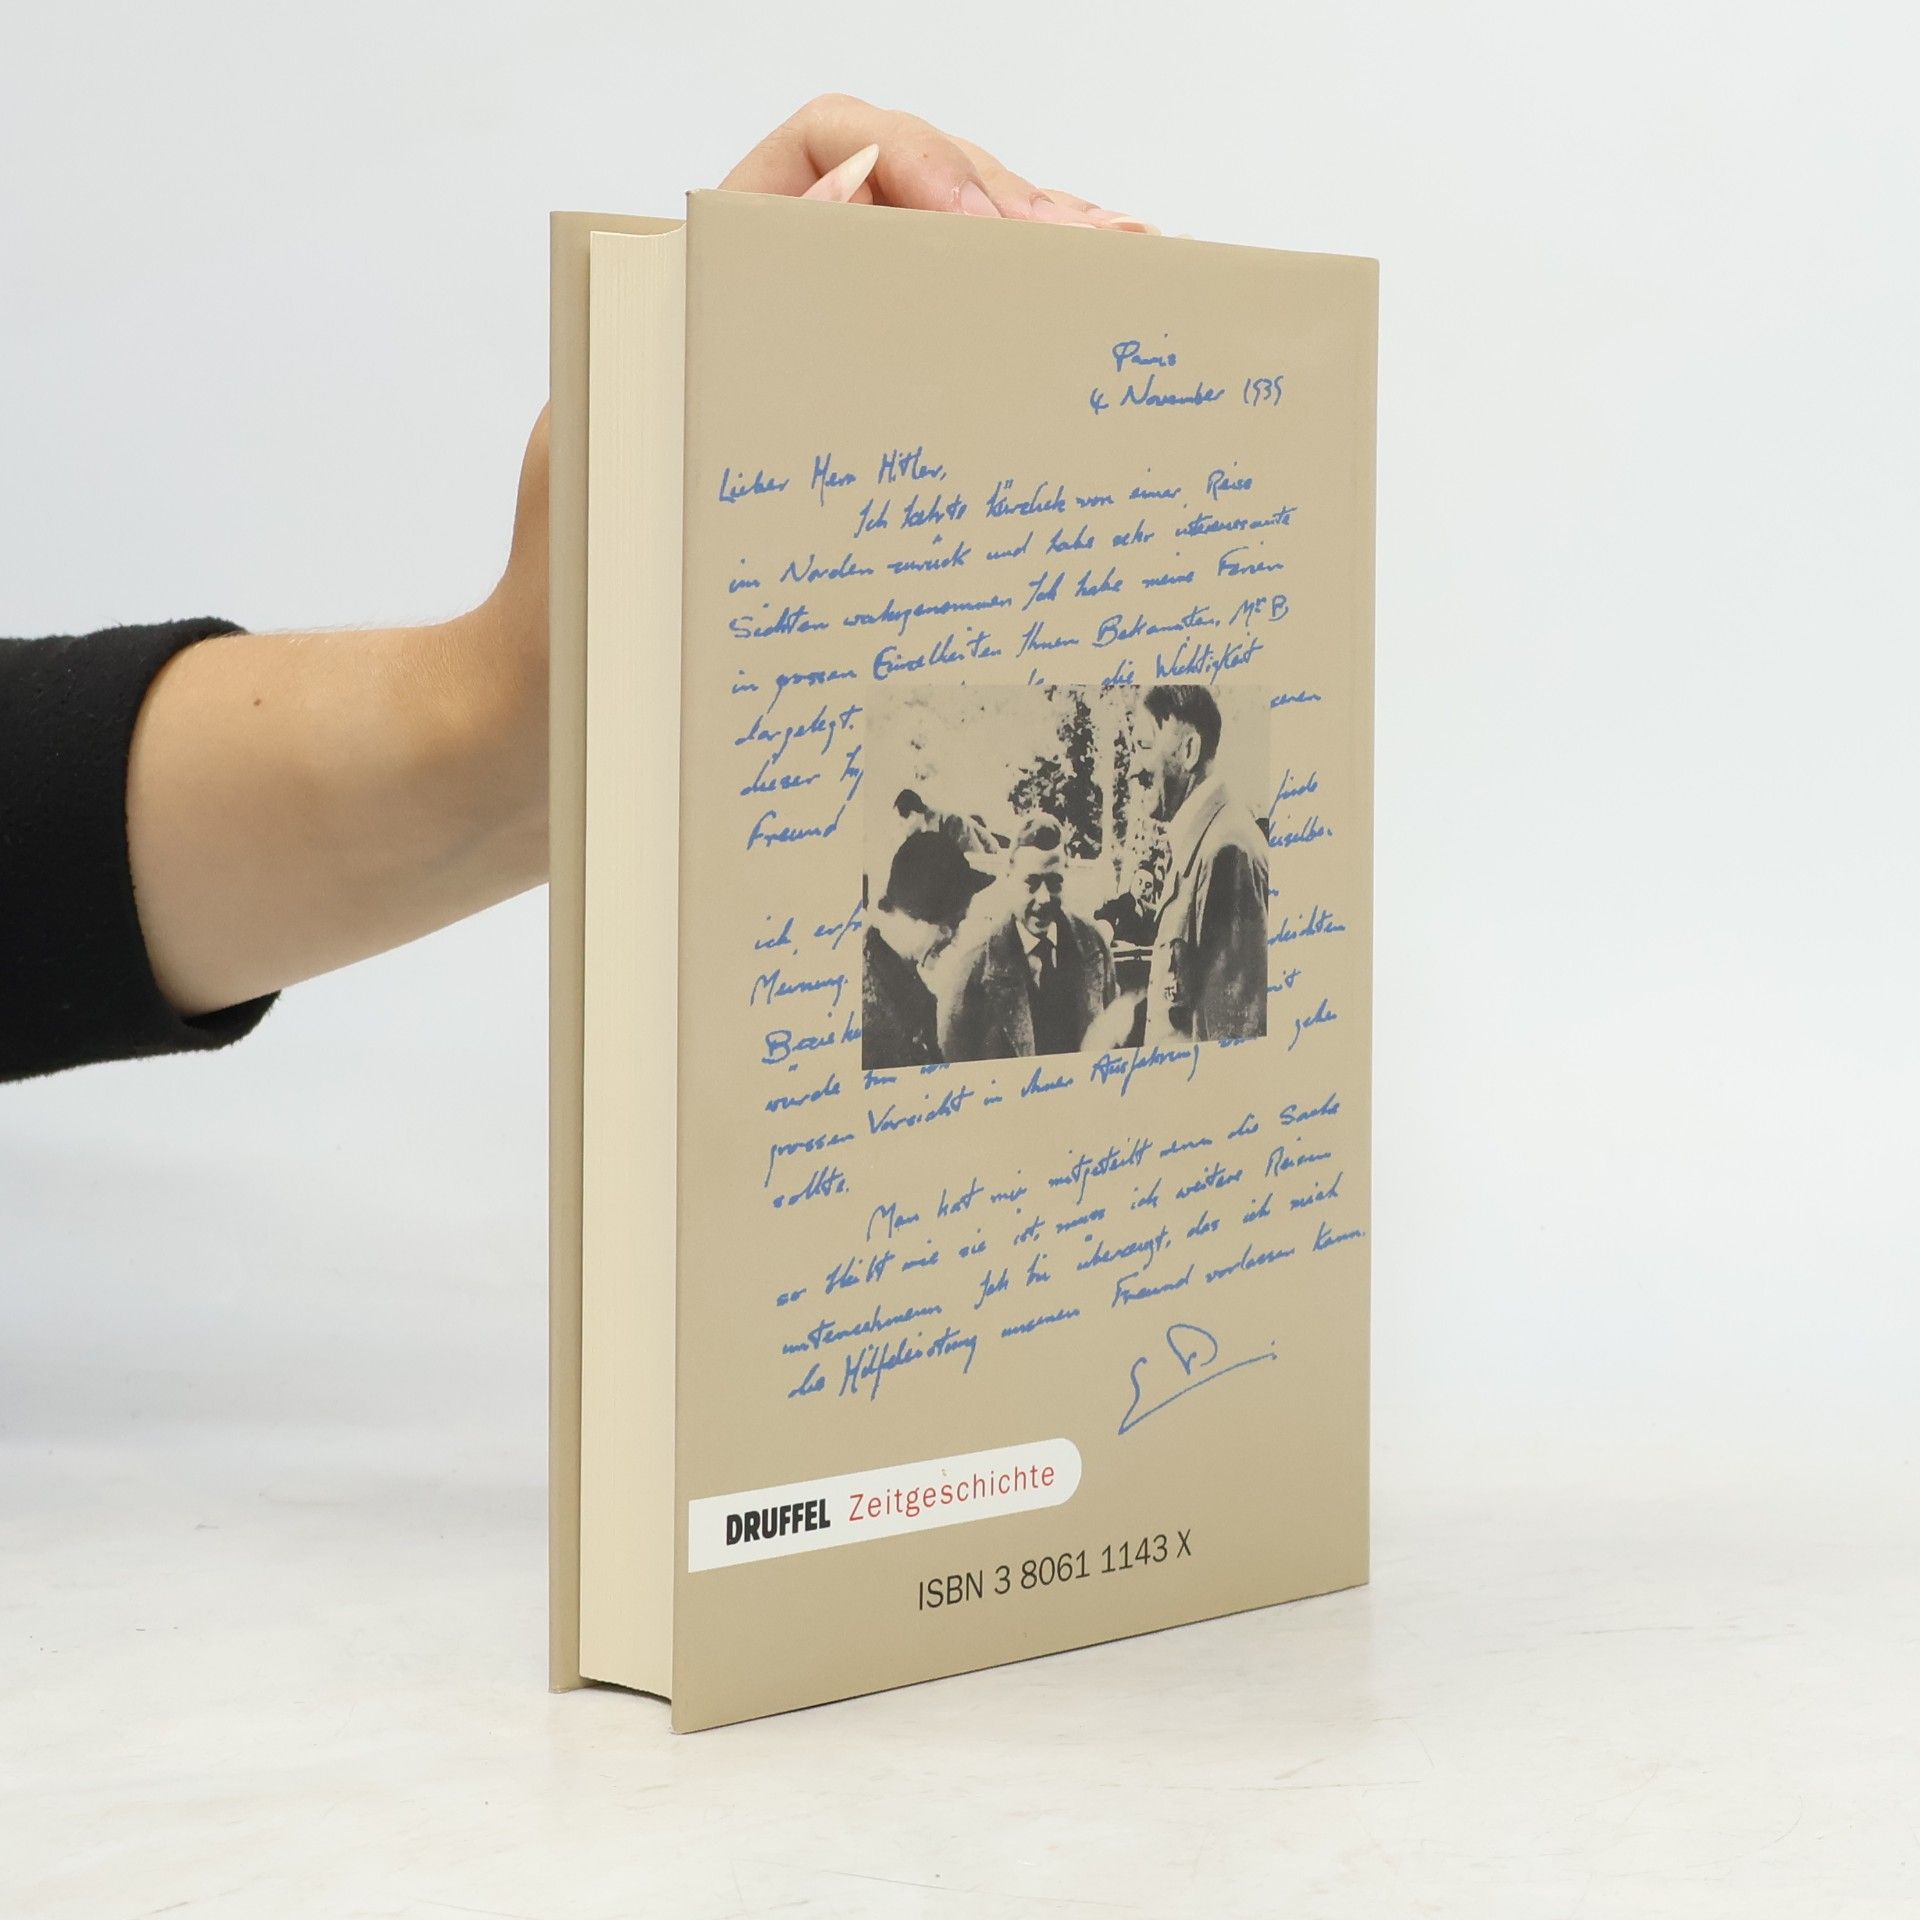 Paris
4 November 1939
Lieber Herr Hitler,
Ich kehrte kürzlich von einer Reise
im Norden zurück und habe sehr interessante
Sichten wahrgenommen Ich habe meine Ferien
in grossen Einzelheiten Ihrem Bekannten, Mr B
dargelegt. die Wichtigkeit
dieser
Freund
ich
Meinung.
würde
grossen Vorsicht in ihrer Ausfahrung gehen
sollte.
Man hat mir mitgeteilt wenn die Sache
so bleibt wie sie ist, muss ich weitere Reisen
unternehmen Ich bin überzeugt, das ich mich
die Hilfeleistung unseren Freund vorlassen kann.
DRUFFEL Zeitgeschichte
ISBN 3 8061 1143 X